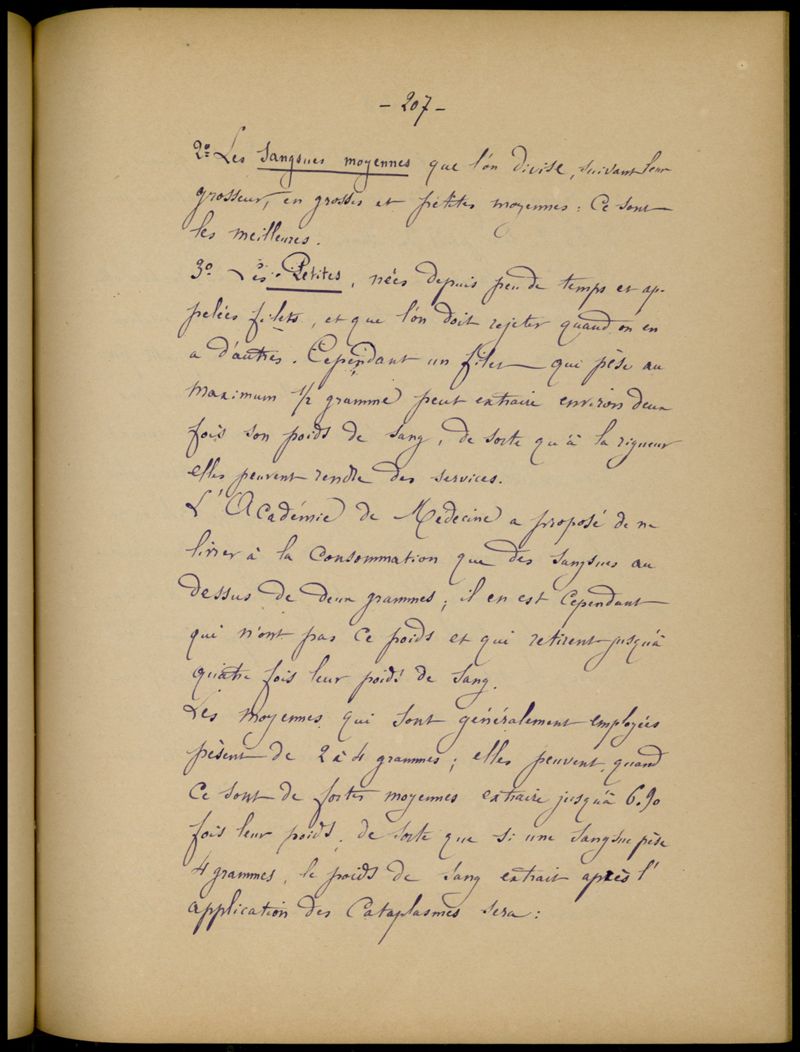 - 207 -
2º Les Sangsues moyennes que l'on divise, suivant leur
grosseur, en grosses et petites moyennes : Ce sont
les meilleures.
3º Les Petites, nées depuis peu de temps et ap-
pelées filets, et que l'on doit rejeter quand on en
a d'autres. Cependant un filet qui pèse au
maximum 1/2 gramme peut extraire environ deux
fois son poids de sang, de sorte qu'à la rigueur
elles peuvent rendre des services.
L'Académie de Medecine a proposé de ne
livrer à la Consommation que des sangsues au
dessus de deux grammes ; il en est Cependant
qui n'ont pas ce poids et qui retirent jusqu'à
quatre fois leur poids de sang.
Les moyennes qui sont généralement employées
pèsent de 2 à 4 grammes ; elles peuvent, quand
Ce sont de fortes moyennes extraire jusqu'à 6.90
fois leur poids, de sorte que si une sangsue pèse
4 grammes, le poids de sang extrait après l'
application des Cataplasmes sera :